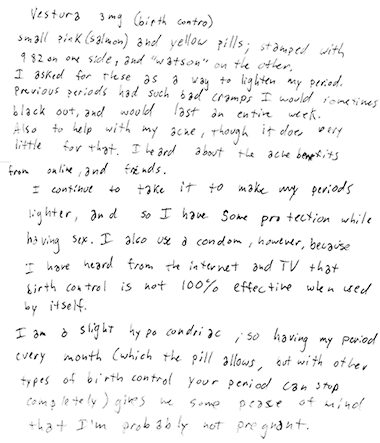 Vestura 3mg (birth contro)
small pink (salmon) and yellow pills; stamped with
982 on one side, and "watson" on the other.
I asked for these as a way to lighten my period.
Previous periods had such bad cramps I would sometimes
black out, and would last an entire week.
Also to help with my acne, though it does very
little for that. I heard about the acne benefits
from online, and friends.
I continue to take it to make my periods
lighter, and so I have some protection while
having sex. I also use a condom, however, because
I have heard from the internet and TV that
birth control is not 100% effective when used
by itself.
I am a slight hypocondriac, so having my period
every month (which the pill allows, but with other
types of birth control your period can stop
completely) gives me some peace of mind
that I'm probably not pregnant.